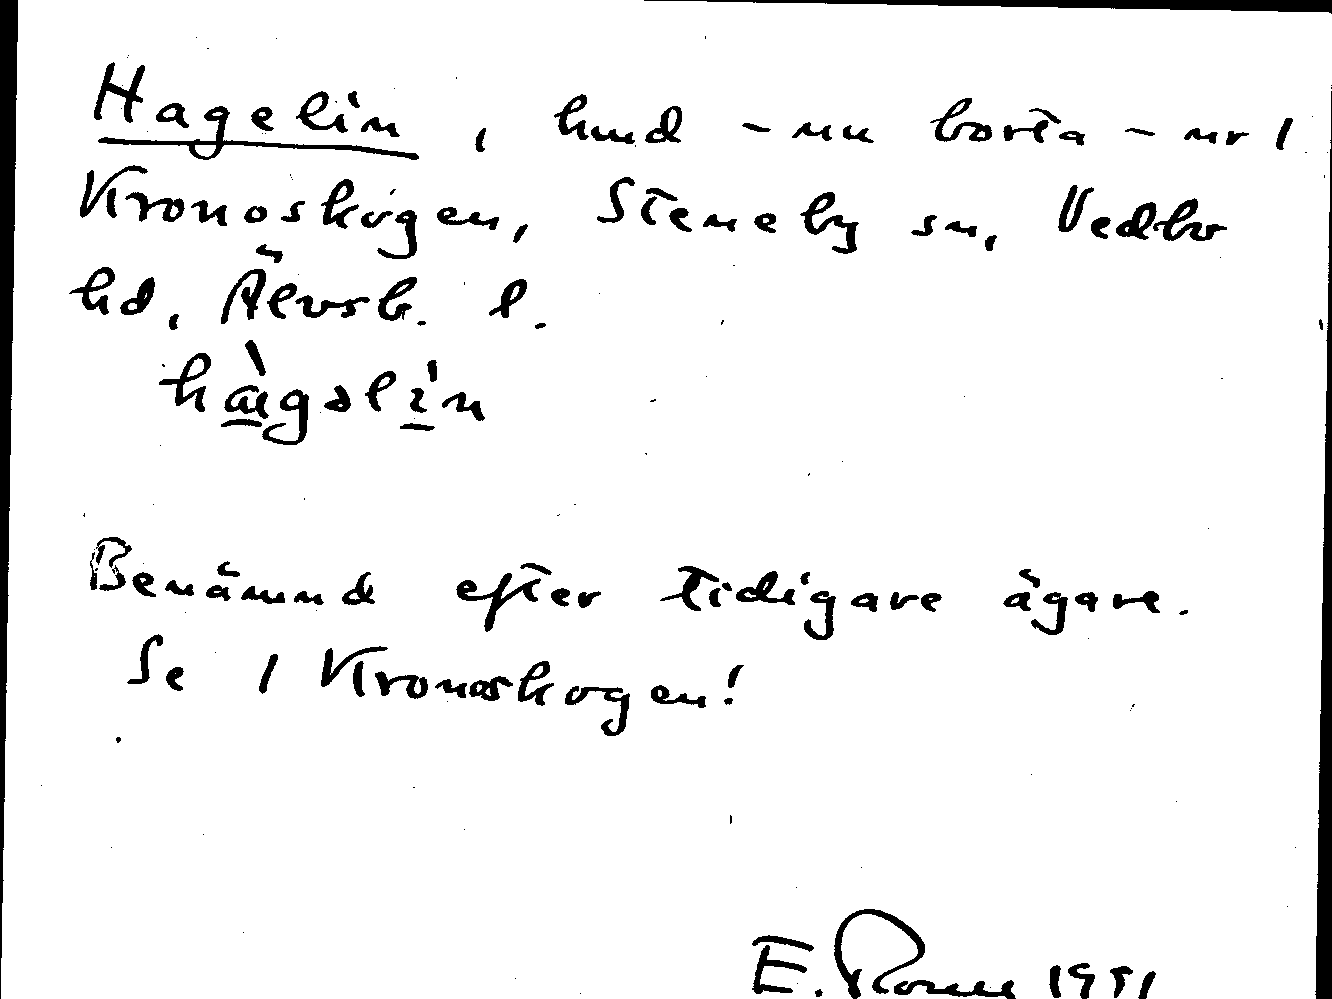 Hagelin, hund - nu borta - nr 1
Kronoskogen, Steneby sn, Vedbo
hd, Älvsb. l.
Benämnd efter tidigare ägare.
Se 1 Kronoskogen!
E.